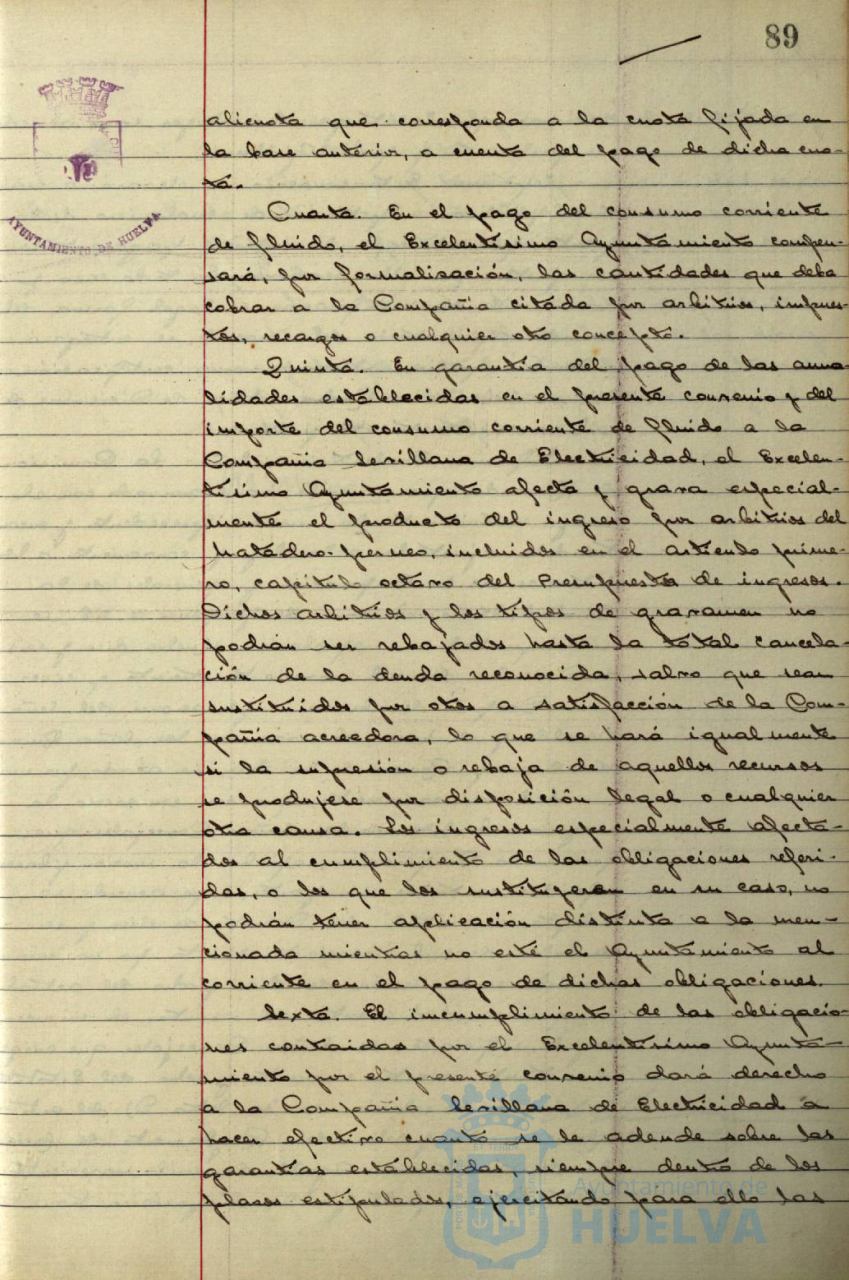 89
alicuota que corresponda a la cuota fijada en
la base anterior, a cuenta del pago de dicha cuo-
ta.
Cuarta. En el pago del consumo corriente
de fluido, el Excelentísimo Ayuntamiento compen-
sará, por formalización, las cantidades que deba
cobrar a la Compañia citada por arbitrios, impues-
tos, recargos o cualquier otro concepto.
Quinta. En garantía del pago de las anua-
lidades establecidas en el presente convenio y del
importe del consumo corriente de fluido a la
Compañia Sevillana de Electricidad, el Excelen-
tísimo Ayuntamiento afecta y grava especial-
mente el producto del ingreso por arbitrios del
Matadero-perneo, incluidos en el artículo prime-
ro, capítulo octavo del Presupuesto de ingresos.
Dichos arbitrios y los tipos de gravamen no
podrán ser rebajados hasta la total cancela-
ción de la deuda reconocida, salvo que sean
sustituidos por otros a satisfacción de la Com-
pañia acreedora, lo que se hará igualmente
si la supresión o rebaja de aquellos recursos
se produjese por disposición legal o cualquier
otra causa. Los ingresos especialmente afecta-
dos al cumplimiento de las obligaciones referi-
das, o los que los sustituyeran en su caso, no
podrán tener aplicación distinta a la men-
cionada mientras no esté el Ayuntamiento al
corriente en el pago de dichas obligaciones.
Sexta. El incumplimiento de las obligacio-
nes contraidas por el Excelentísimo Ayunta-
miento por el presente convenio dará derecho
a la Compañia Sevillana de Electricidad a
hacer efectivo cuanto se le adeude sobre las
garantías establecidas, siempre dentro de los
plazos estipulados, ejercitando para ello las
AYUNTAMIENTO DE HUELVA
Ayuntamiento de
HUELVA